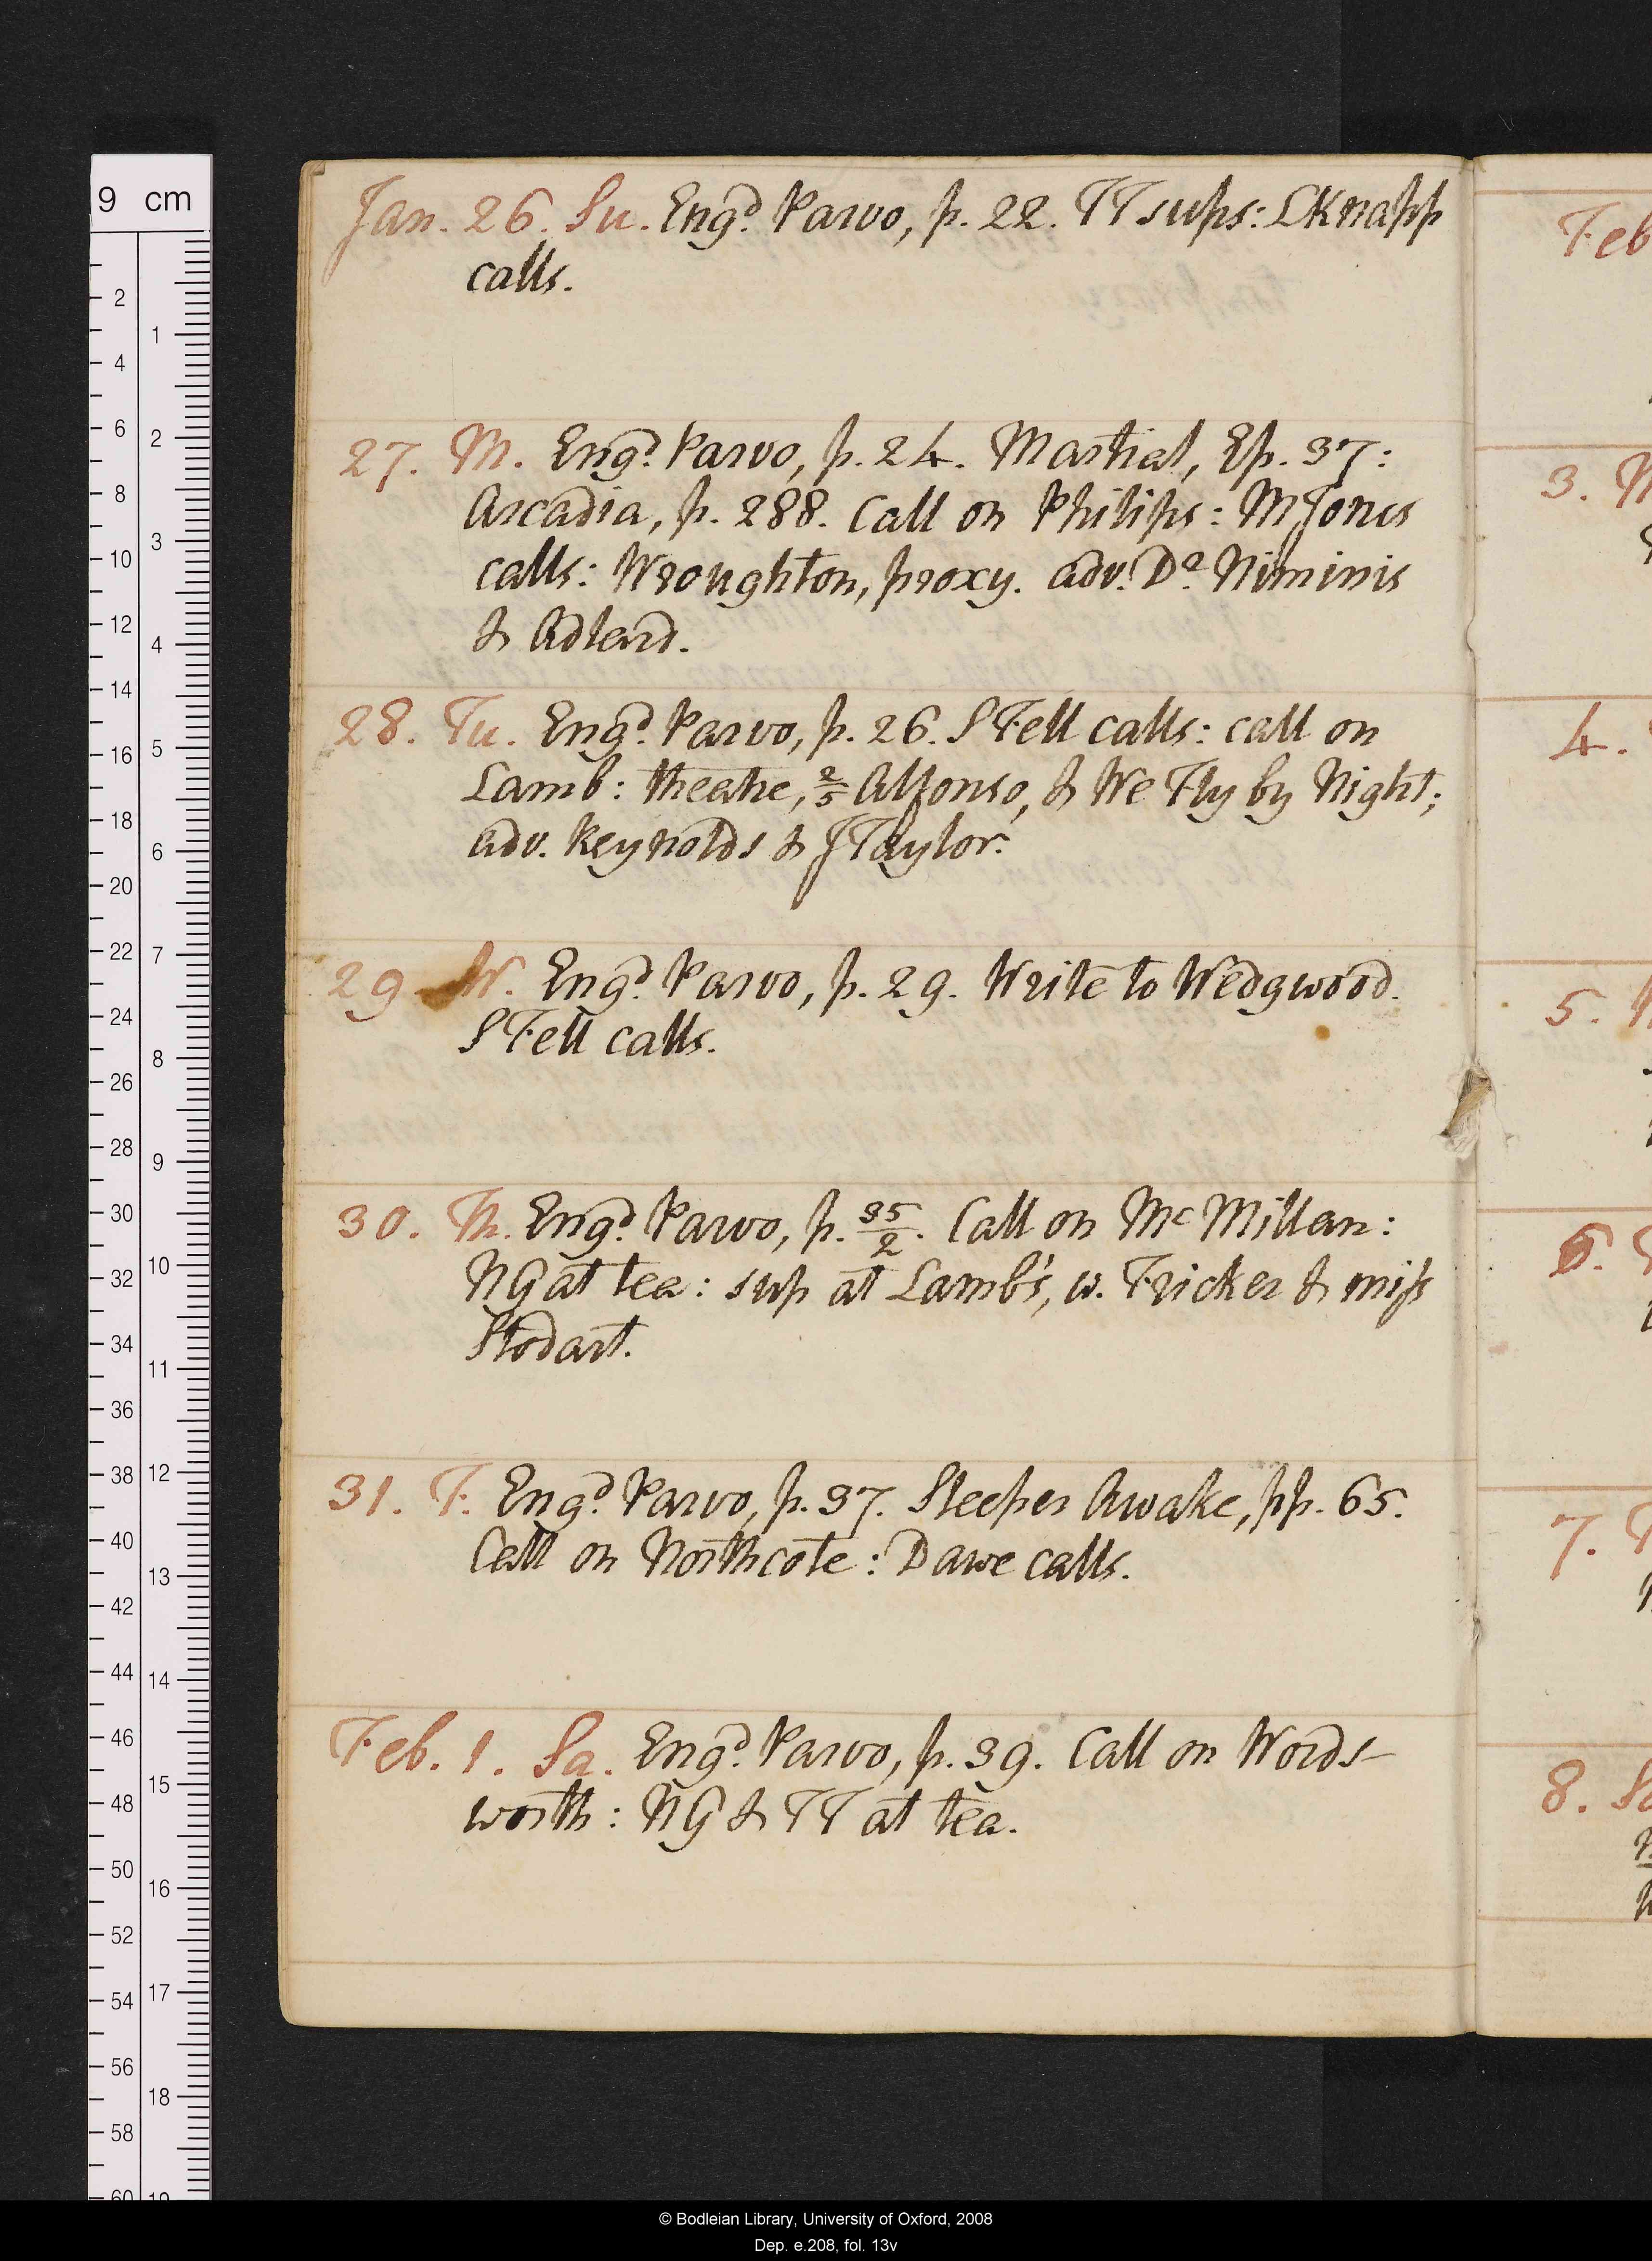 Jan. 26. Su. Engd. Parvo, p. 22. TT sups: LKnapp
calls.
27. M. Engd. Parvo, p. 24. Martial, Ep. 37:
Arcadia, p. 288. Call on Philips: MJones
calls: Wroughton, proxy. adv. Da. Niminis
& Adlard.
28. Tu. Engd. Parvo, p. 26. SFell calls: call on
Lamb: theatre, 2/5 Alfonso, & We Fly by Night;
adv. Reynolds & JTaylor.
29. W. Engd. Parvo, p. 29. Write to Wedgwood.
SFell calls.
30. Th. Engd. Parvo, p. 35/2. Call on Mc Millan:
NG at tea: sup at Lamb's, w. Fricker & miss
Stodart.
31. F. Engd. Parvo, p. 37. Sleeper Awake, pp. 65.
Call on Northcote: Dawe calls.
Feb. 1. Sa. Engd. Parvo, p. 39. Call on Words-
worth: NG & TT at tea.
Feb
3.
4.
5.
6.
7.
8. Sa
9 cm
2
4
6
8
10
12
14
16
18
20
22
24
26
28
30
32
34
36
38
40
42
44
46
48
50
52
54
56
58
60
1
2
3
4
5
6
7
8
9
10
11
12
13
14
15
16
17
18
19
© Bodleian Library, University of Oxford, 2008
Dep. e.208, fol. 13v